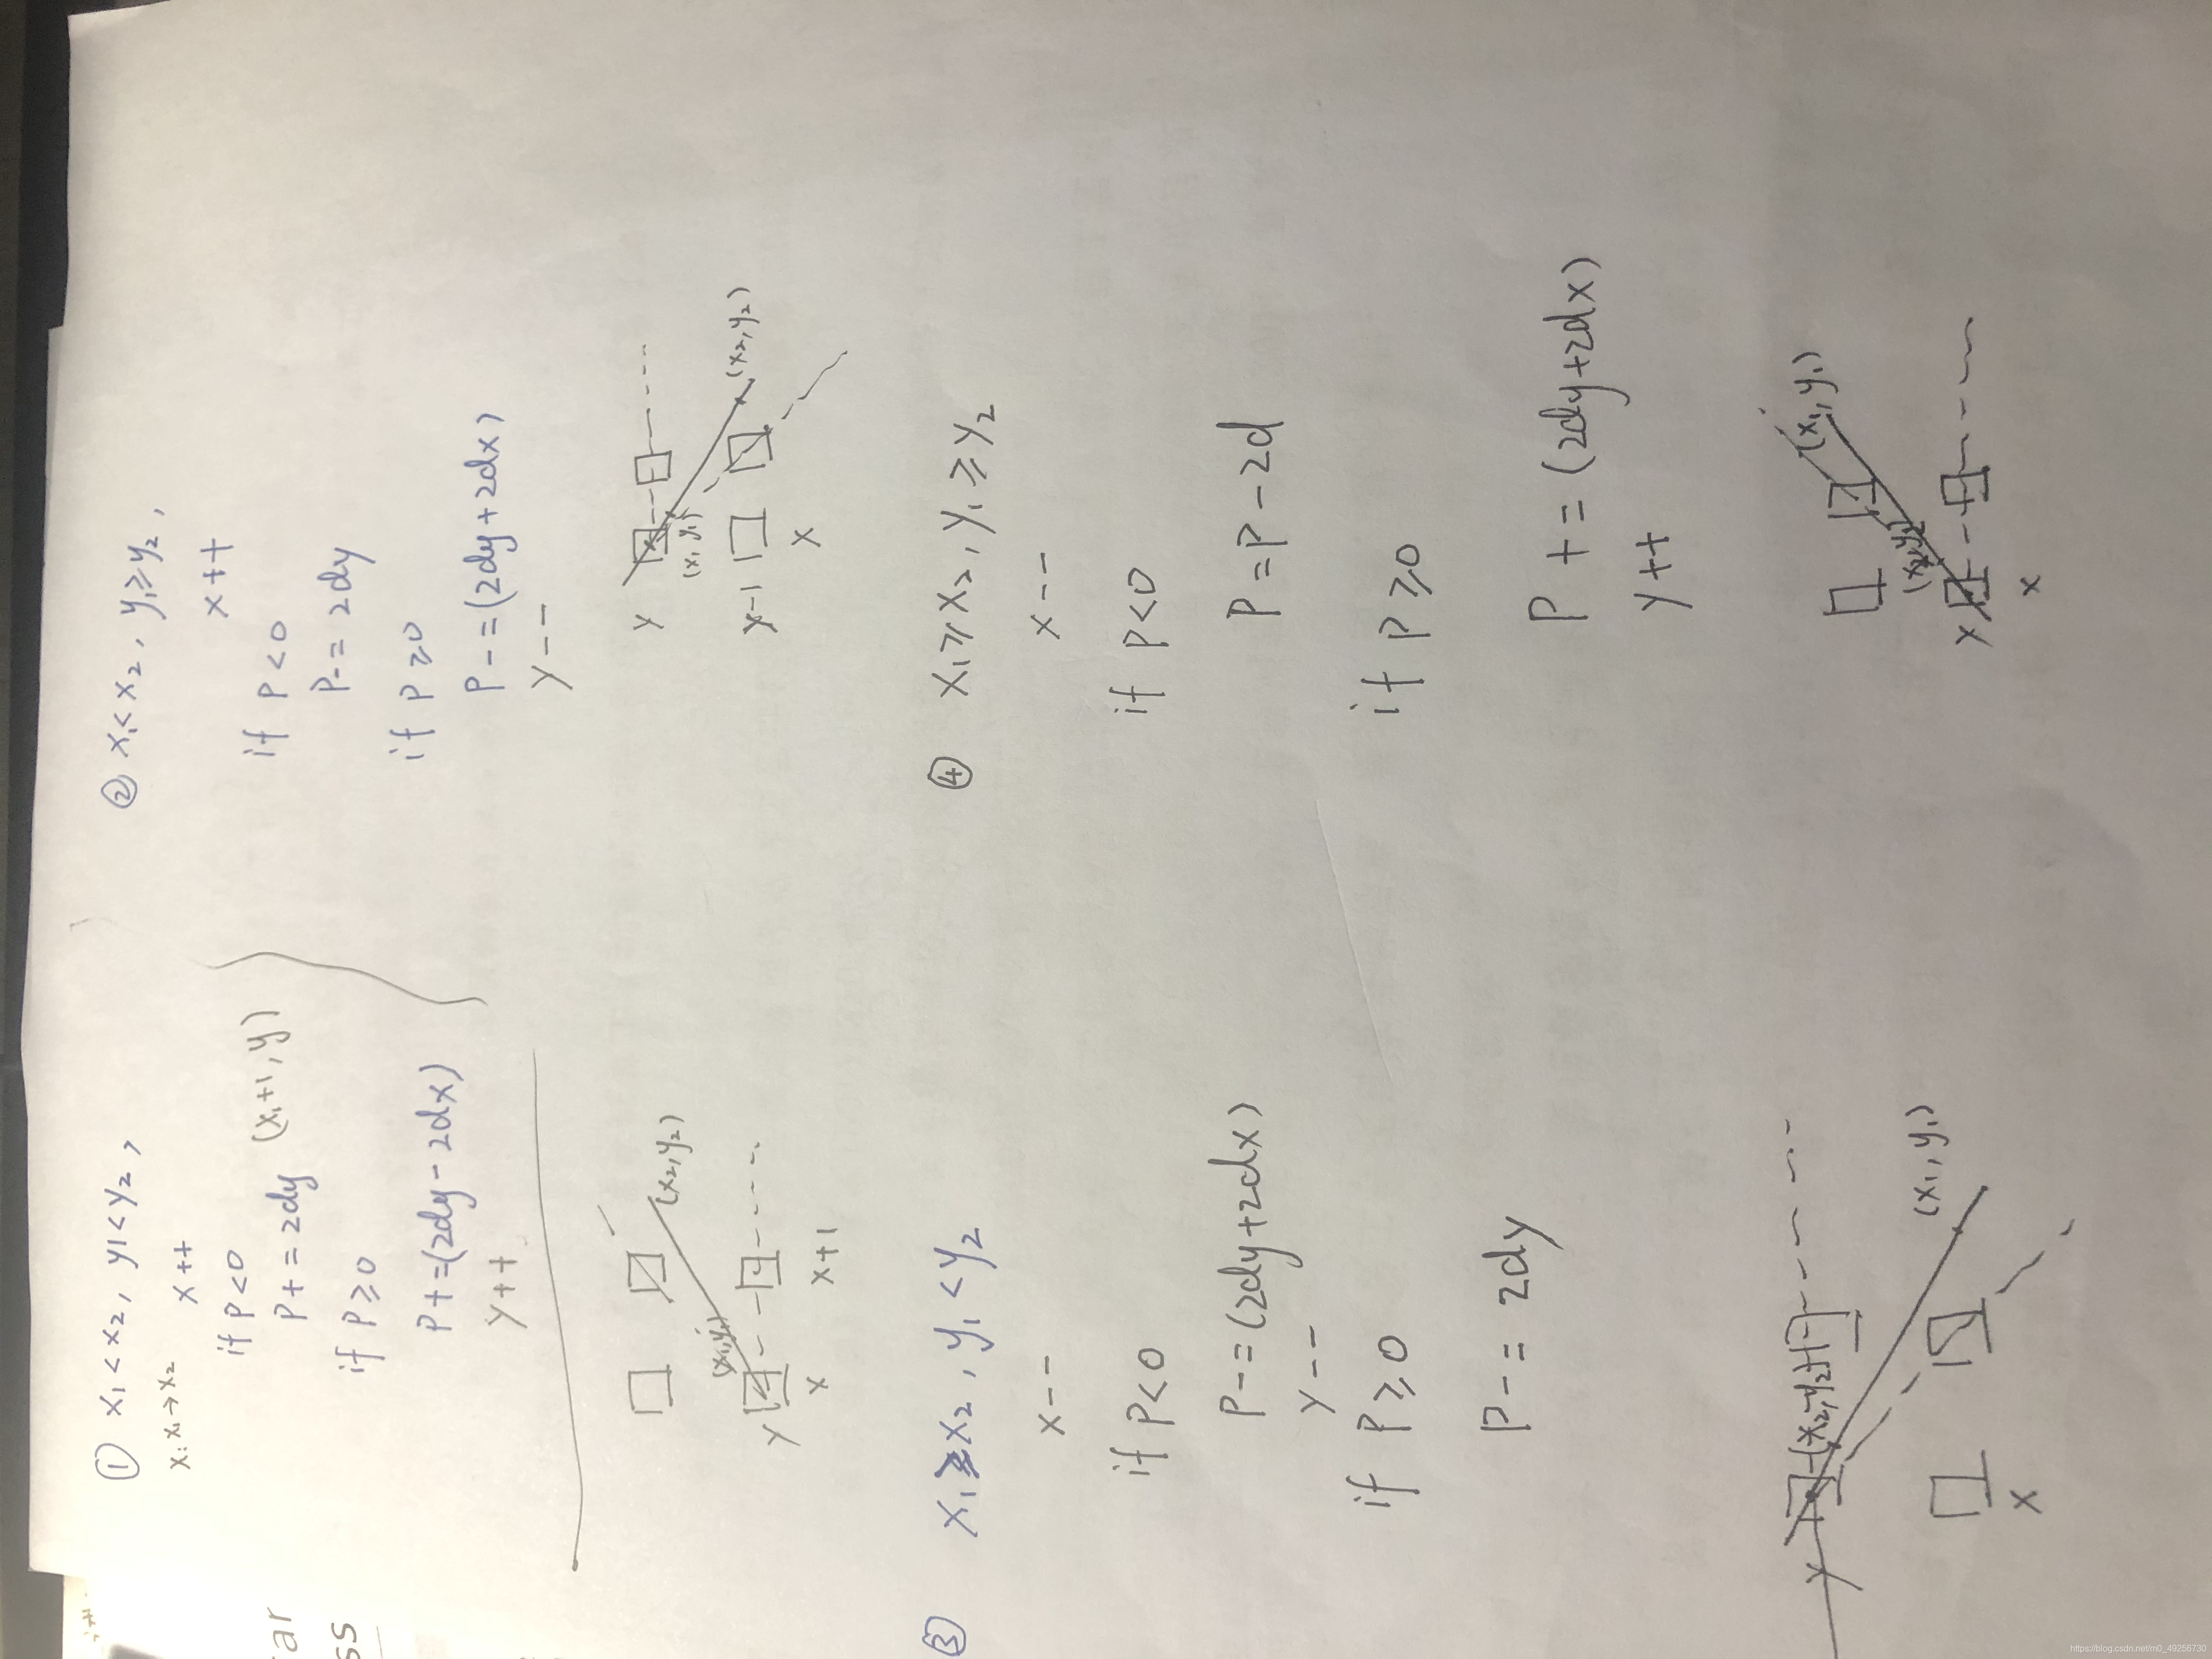 ① x₁<x₂, y₁<y₂,
x: x₁→x₂
x++
if P<0
P+=2dy (x₁+1, y)
if P≥0
P+=(2dy-2dx)
y++
(x₂,y₂)
(x₁,y₁)
y
x x+1
② x₁<x₂, y₁≥y₂,
x++
if P<0
P-=2dy
if P≥0
P-=(2dy+2dx)
y--
y
(x₁,y₁)
(x₂,y₂)
y-1
x
③ x₁≥x₂, y₁<y₂
x--
if P<0
P-=(2dy+2dx)
y--
if P≥0
P-=2dy
y
(x₂,y₂)
(x₁,y₁)
x
④ x₁≥x₂, y₁≥y₂
x--
if P<0
P=P-2d
if P≥0
P+=(2dy+2dx)
y++
(x₁,y₁)
(x₂,y₂)
y
x
ar
ss
https://blog.csdn.net/m0_49256730